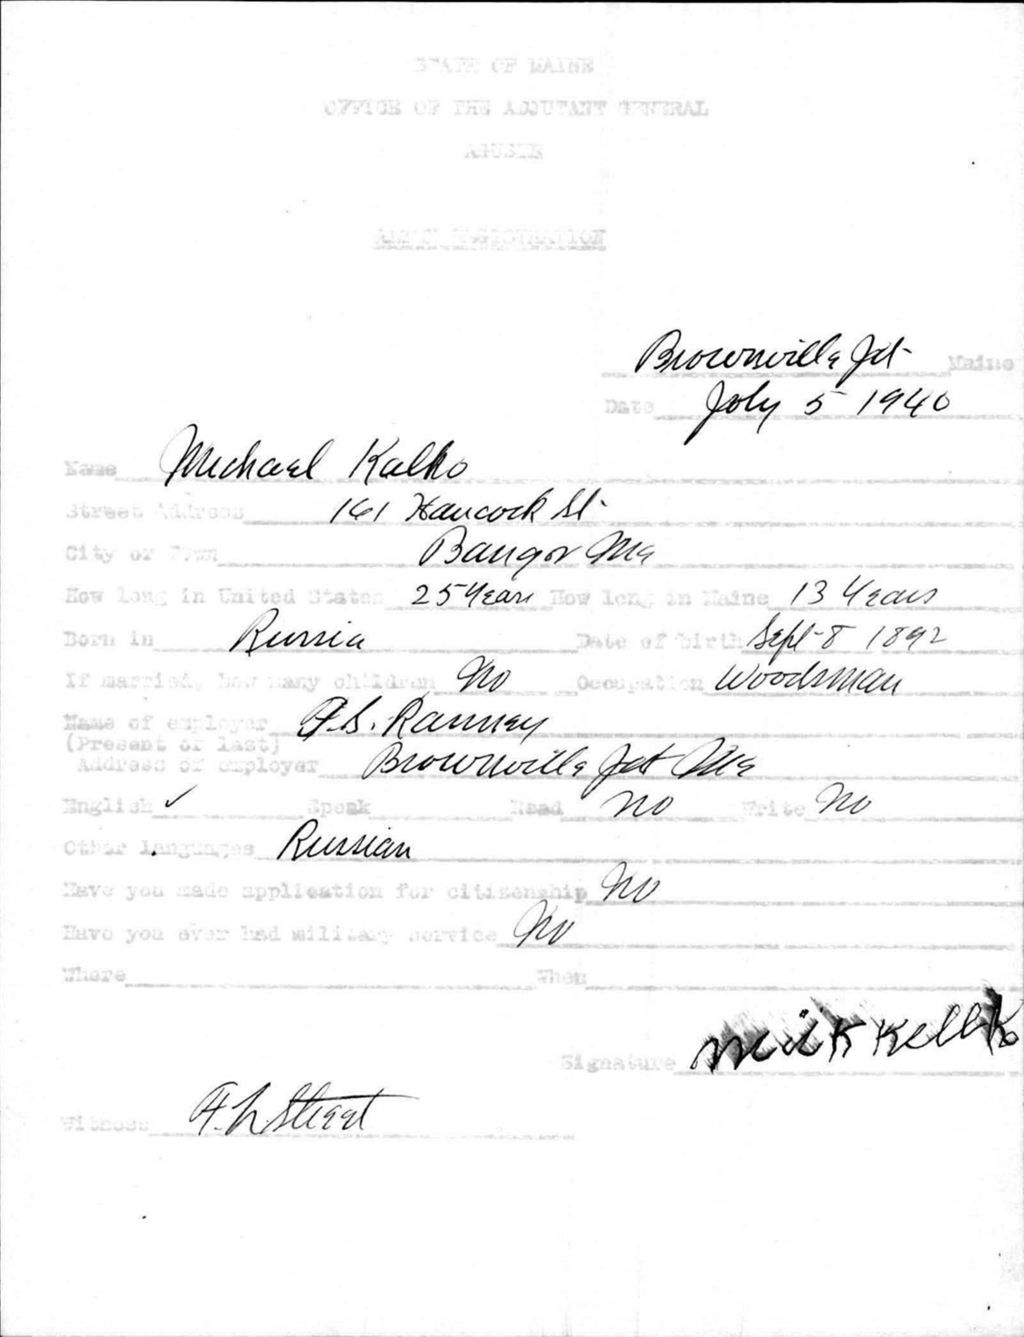 STATE OF MAINE
OFFICE OF THE ADJUTANT GENERAL
AUGUSTA
ALIEN REGISTRATION
Brownville Jct Maine
Date July 5 1940
Name Michael Kalko
Street Address 161 Hancock St
City or Town Bangor Me
How long in United States 25 Years How long in Maine 13 Years
Born in Russia Date of birth Sept 8 1892
If married, how many children No Occupation Woodsman
Name of employer Ranney
(Present or last)
Address of employer Brownville Jct Me
English ✓ Speak Read No Write No
Other languages Russian
Have you made application for citizenship No
Have you ever had military service No
Where When
Signature
Witness